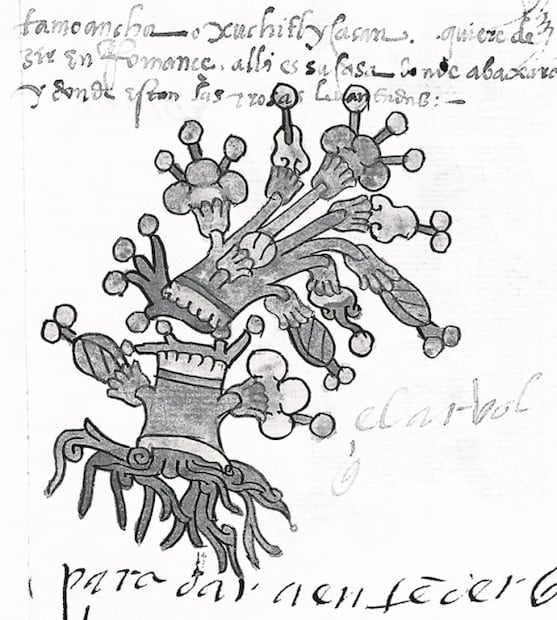 tamoancha o xuchitlycacan. quiere de
zir en Romance. alli es su casa donde abaxaro
y donde estan sus rosas levantadas: —
el arbol
para dar a entẽder